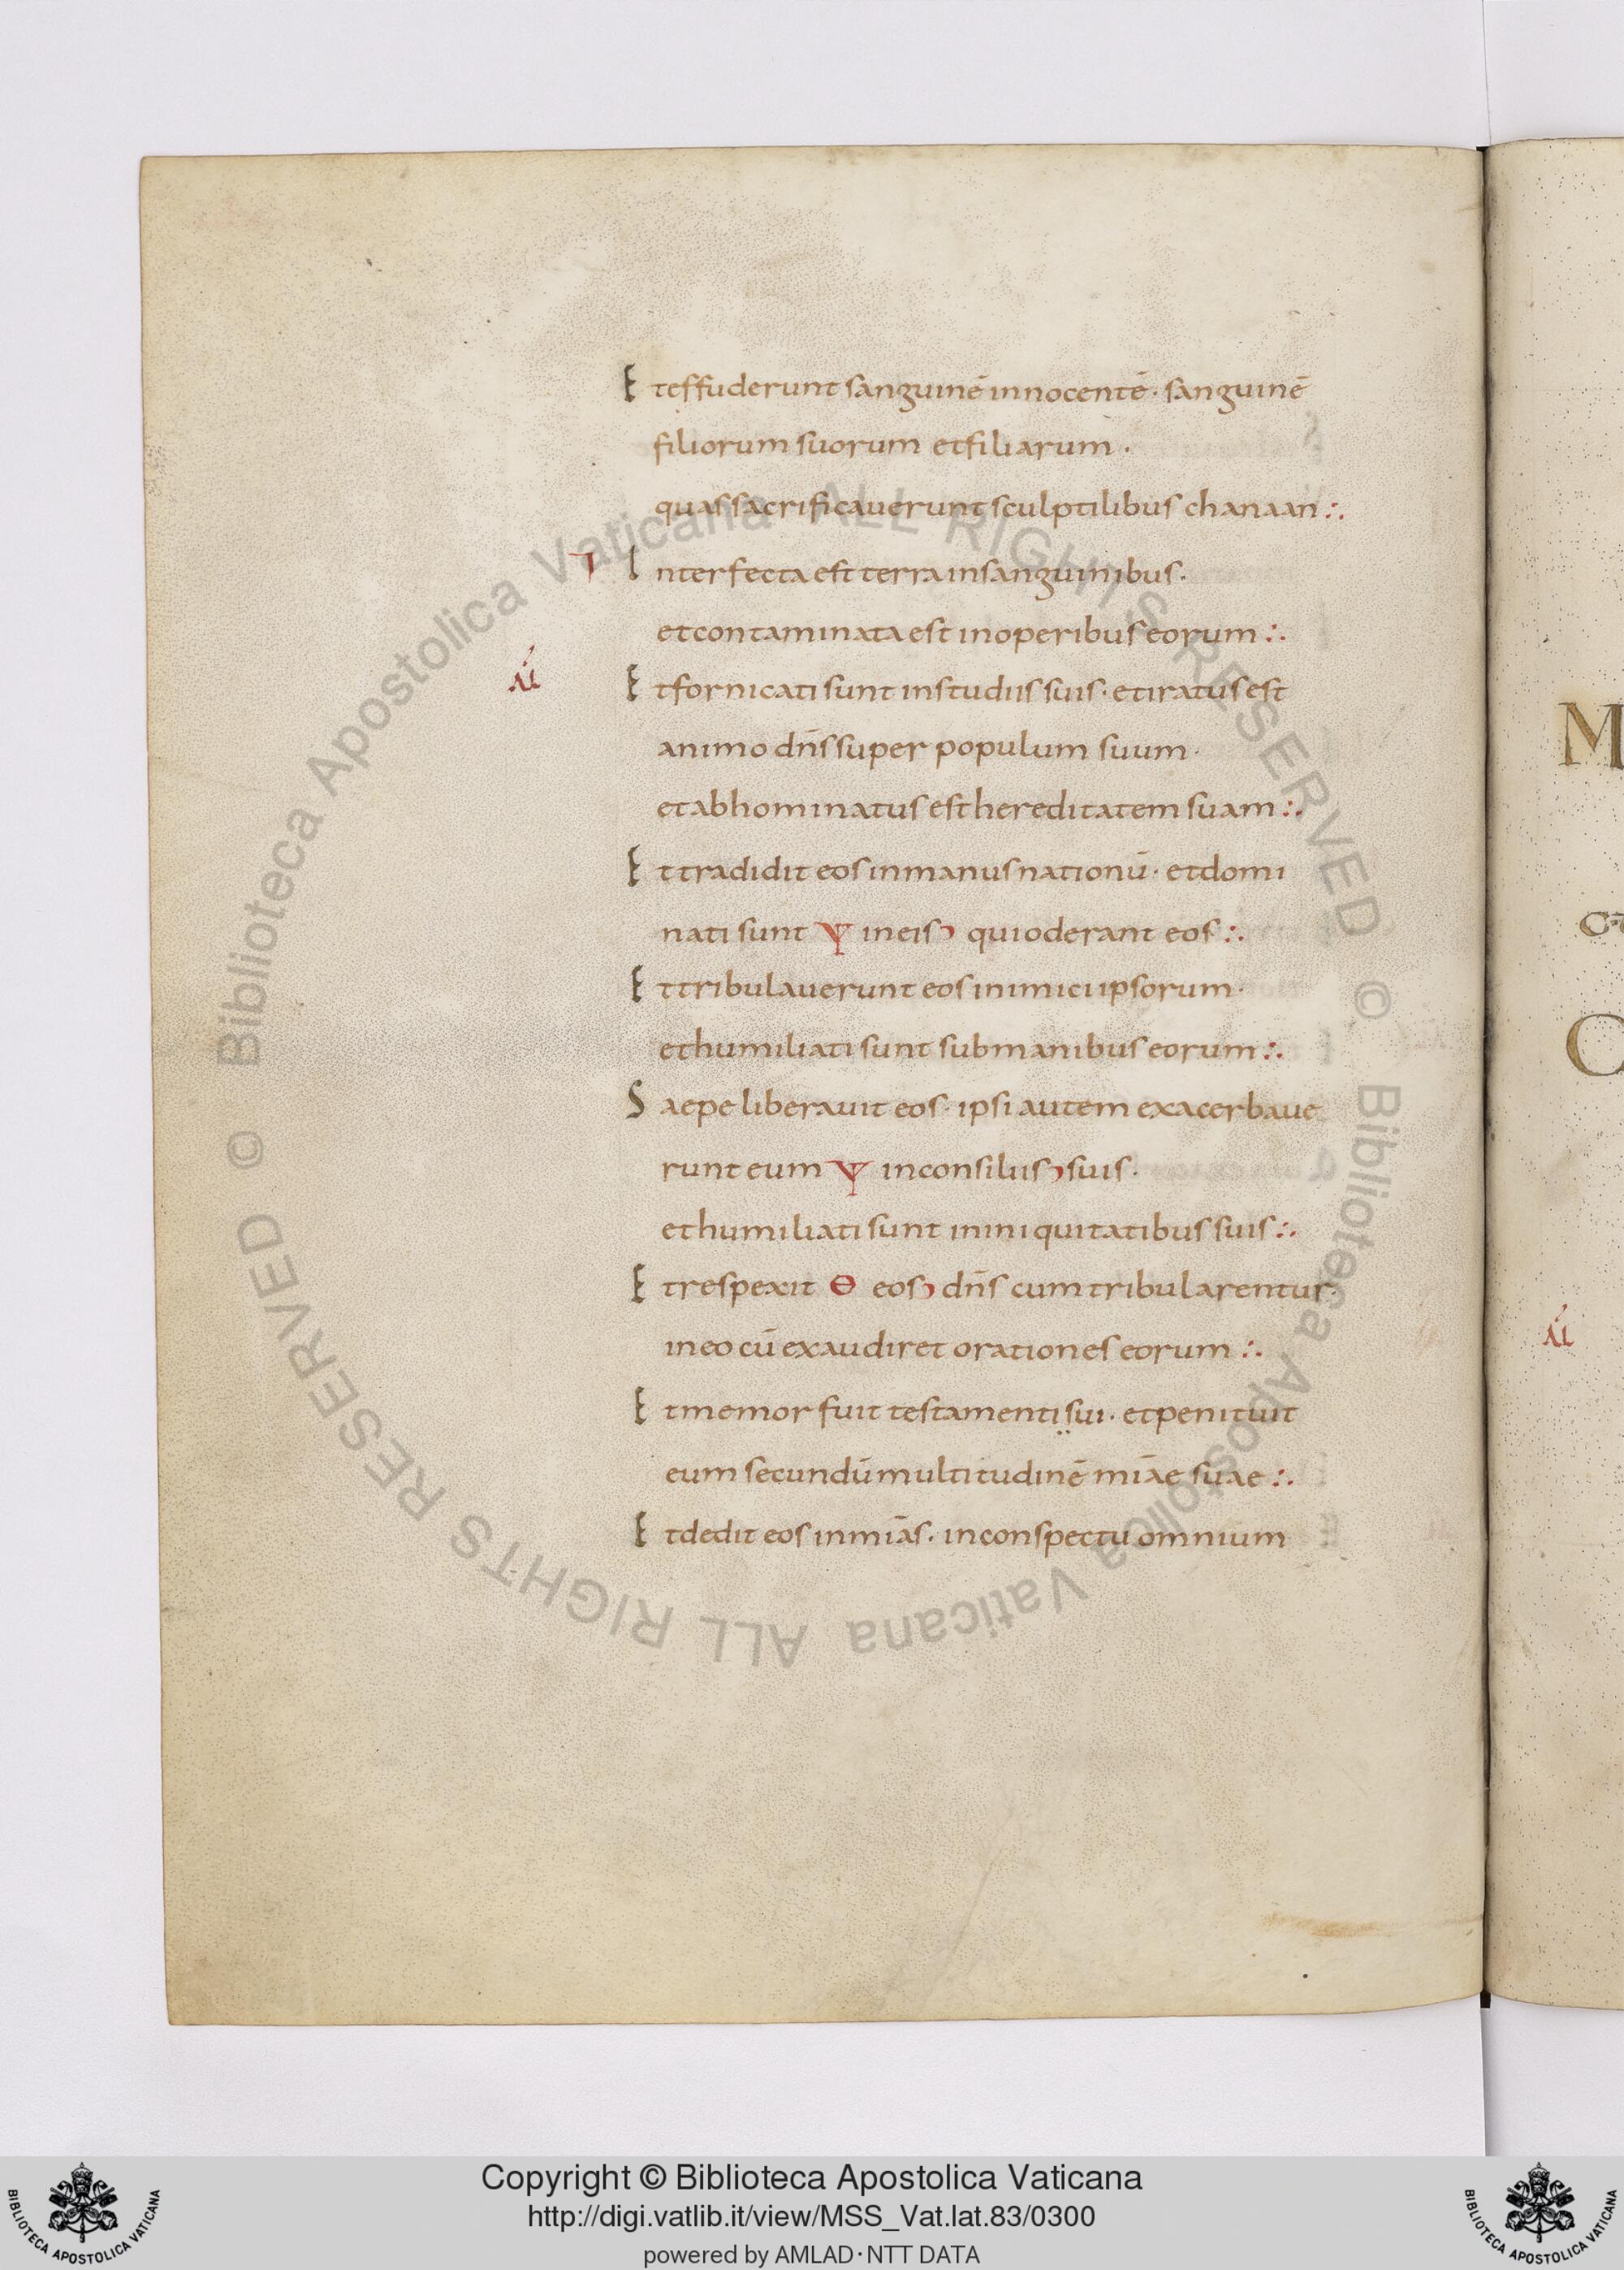 Et effuderunt sanguinē innocentē · sanguinē
filiorum suorum et filiarum ·
quas sacrificaverunt sculptilibus chanaan :.
Interfecta est terra in sanguinibus ·
et contaminata est in operibus eorum :.
Et fornicati sunt in studiis suis · et iratus est
animo dn̄s super populum suum ·
et abhominatus est hereditatem suam :.
Et tradidit eos in manus nationū · et domi
nati sunt Ψ in eis qui oderant eos :.
Et tribulaverunt eos inimici ipsorum ·
et humiliati sunt sub manibus eorum :.
Saepe liberavit eos · ipsi autem exacerbave
runt eum Ψ in consiliis suis ·
et humiliati sunt in iniquitatibus suis :.
Et respexit Θ eos dn̄s cum tribularentur ·
in eo cū exaudiret orationes eorum :.
Et memor fuit testamenti sui · et penituit
eum secundū multitudinē miāe suae :.
Et dedit eos in miās · in conspectu omnium
© Biblioteca Apostolica Vaticana ALL RIGHTS RESERVED © Biblioteca Apostolica Vaticana ALL RIGHTS RESERVED
M
C
Copyright © Biblioteca Apostolica Vaticana
http://digi.vatlib.it/view/MSS_Vat.lat.83/0300
powered by AMLAD · NTT DATA
BIBLIOTECA APOSTOLICA VATICANA
BIBLIOTECA APOSTOLICA VATICANA